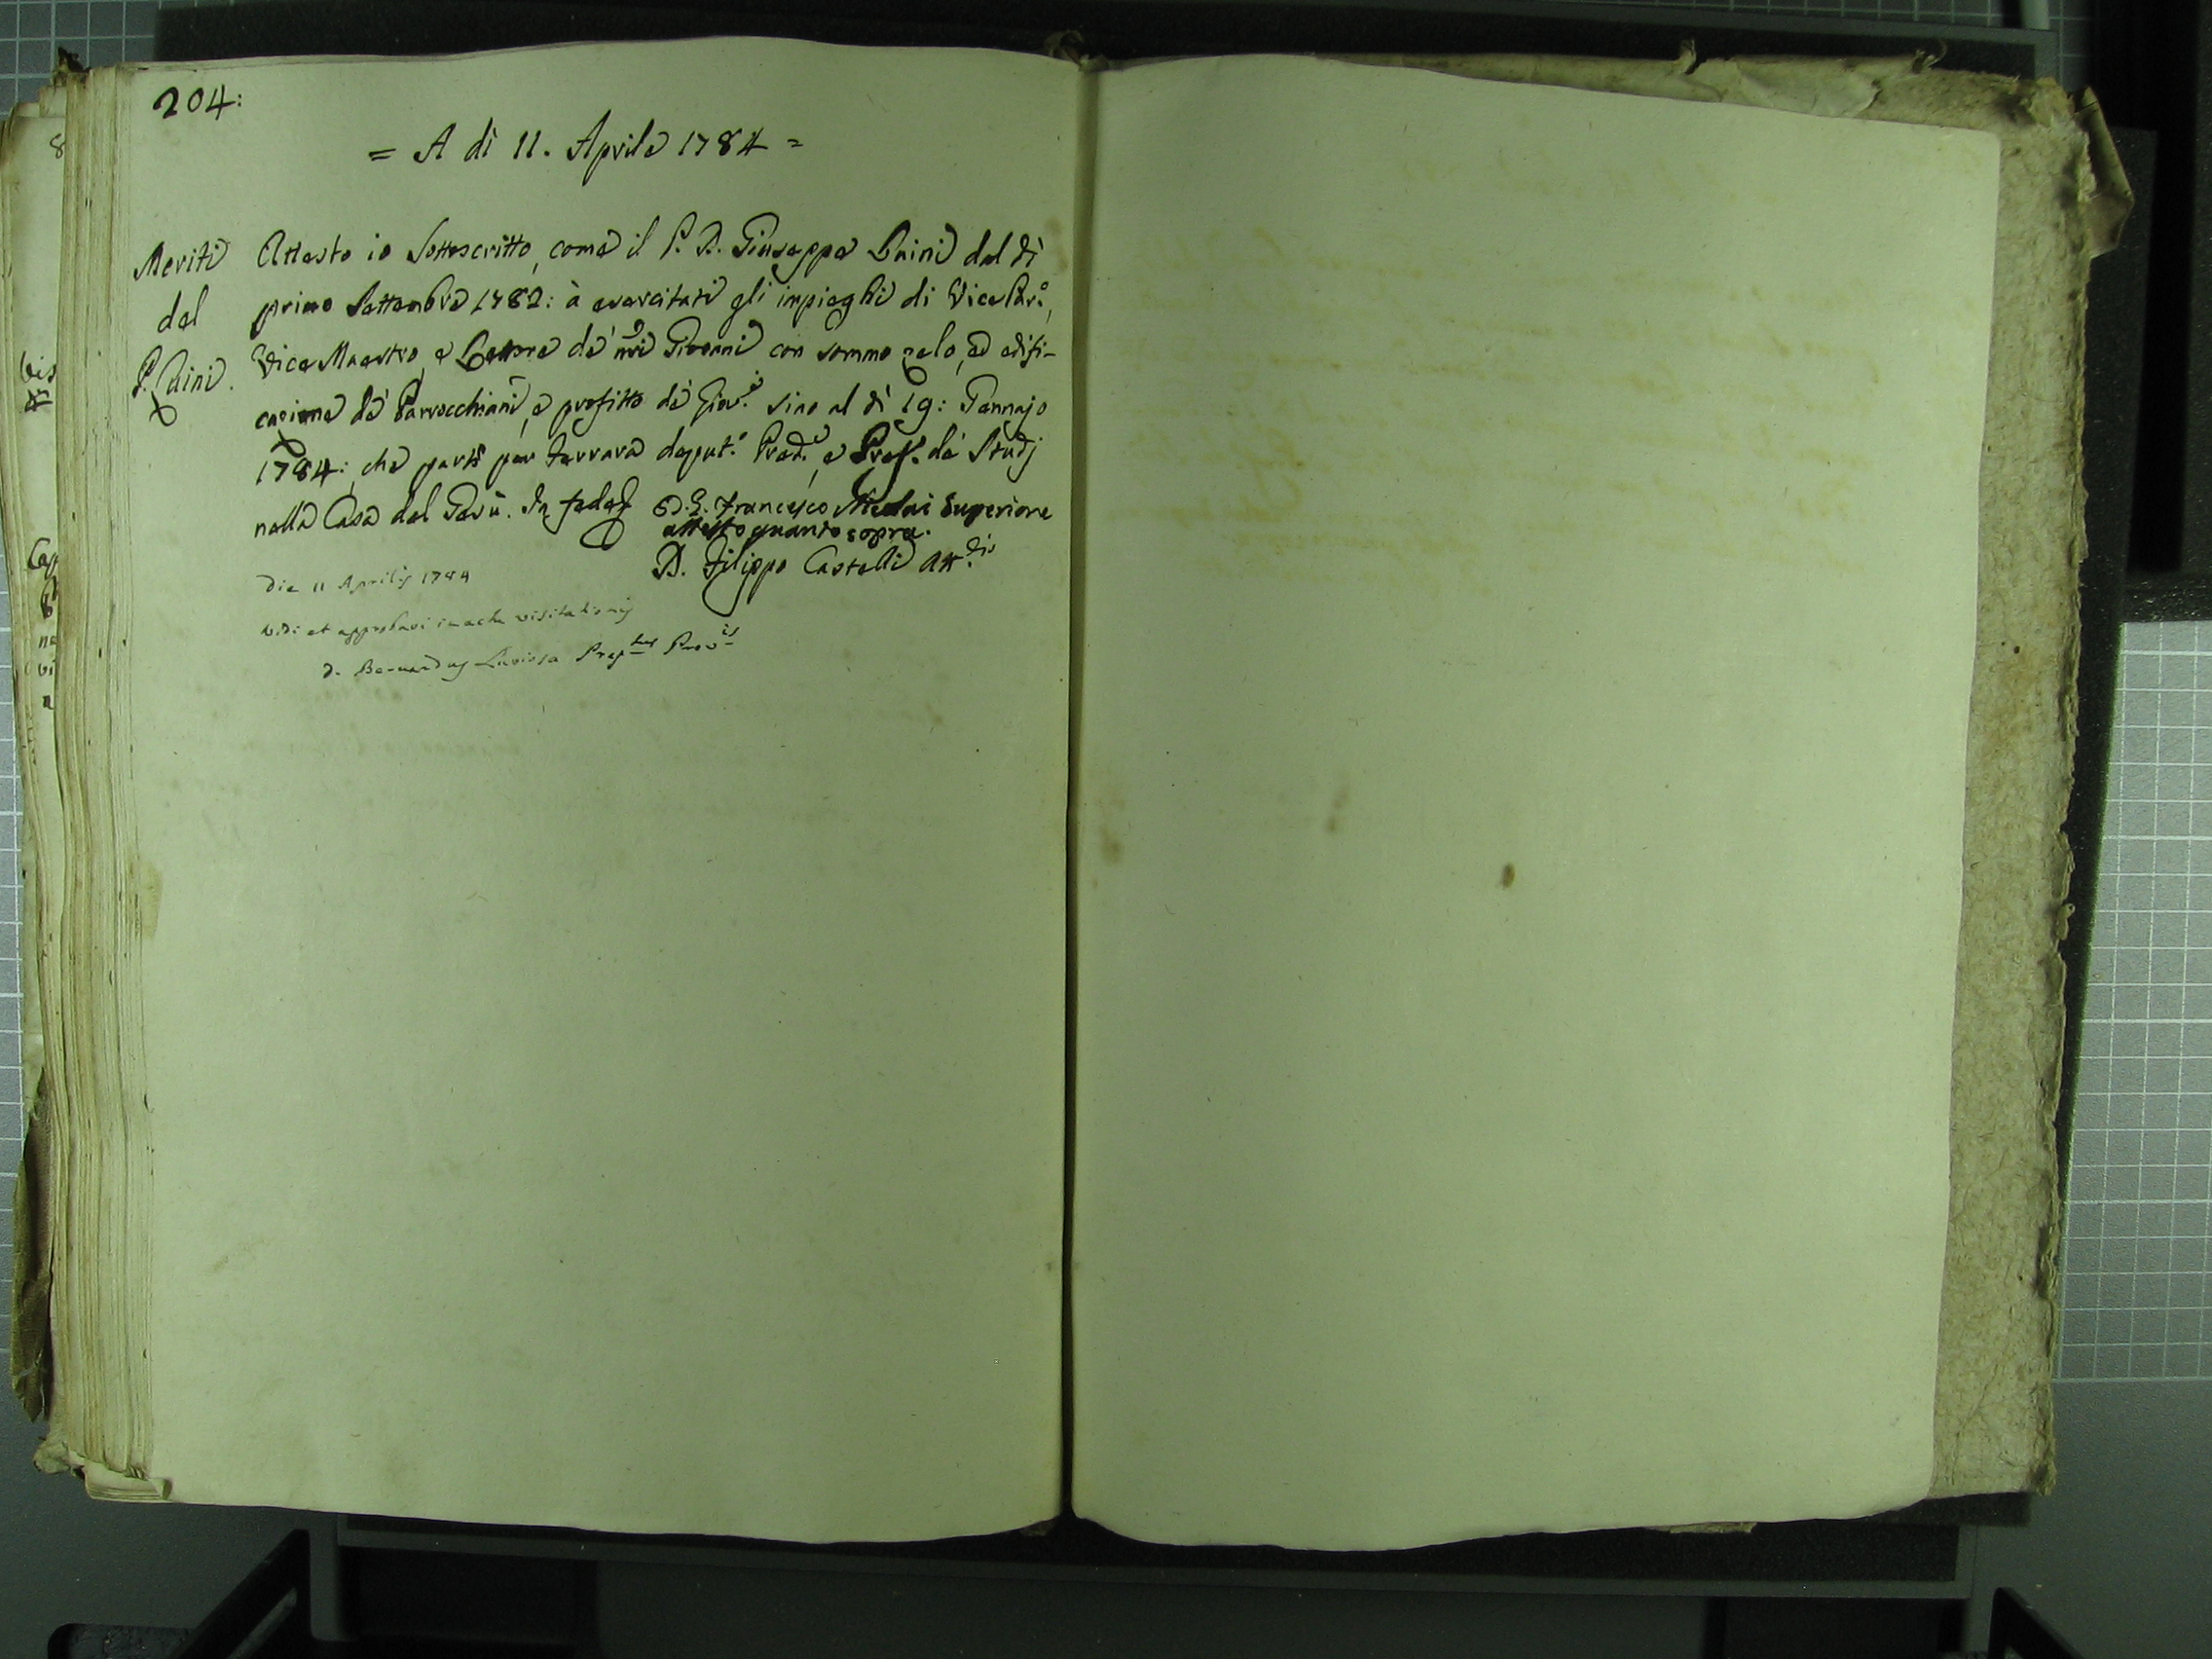 204:
= A dì 11. Aprile 1784 =
Meriti
del
P. Laini.
Attesto io Sottoscritto, come il P. D. Giuseppe Laini dal dì
primo Settembre 1782: à exercitati gli impieghi di Vice Par.o,
Vice Maestro, e Lettore de' nri Giovani con sommo zelo, ed edifi-
cazione de' Parrocchiani, e profitto de' Giov.i sino al dì 19: Gennajo
1784: che partì per Ferrara deput.o Pred.e, e Pref. de' Studj
nella Casa del Gesù. In fede
D. G. Francesco Nicolai Superiore
attesto quanto sopra.
D. Filippo Castelli Att.rio
Die 11 Aprilis 1784
Vidi et approbavi in actu visitationis
D. Bernardus Laviosa Prep.tus Prov.is